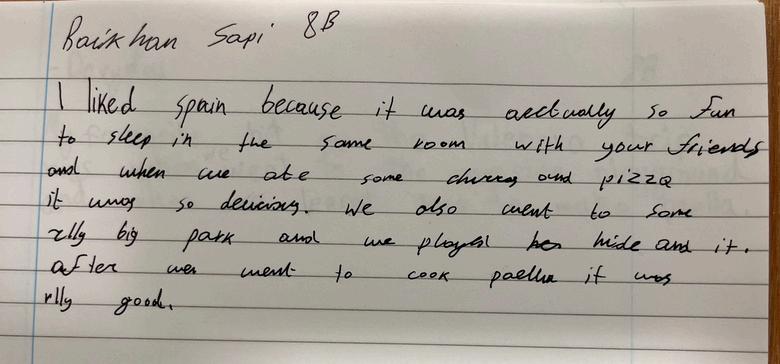 Baikhan Sapi 8B
I liked spain because it was aectually so fun
to sleep in the same room with your friends
and when we ate some churros and pizza
it was so delicious. We also went to some
rlly big park and we played hide and it.
after we went to cook paella it was
rlly good.